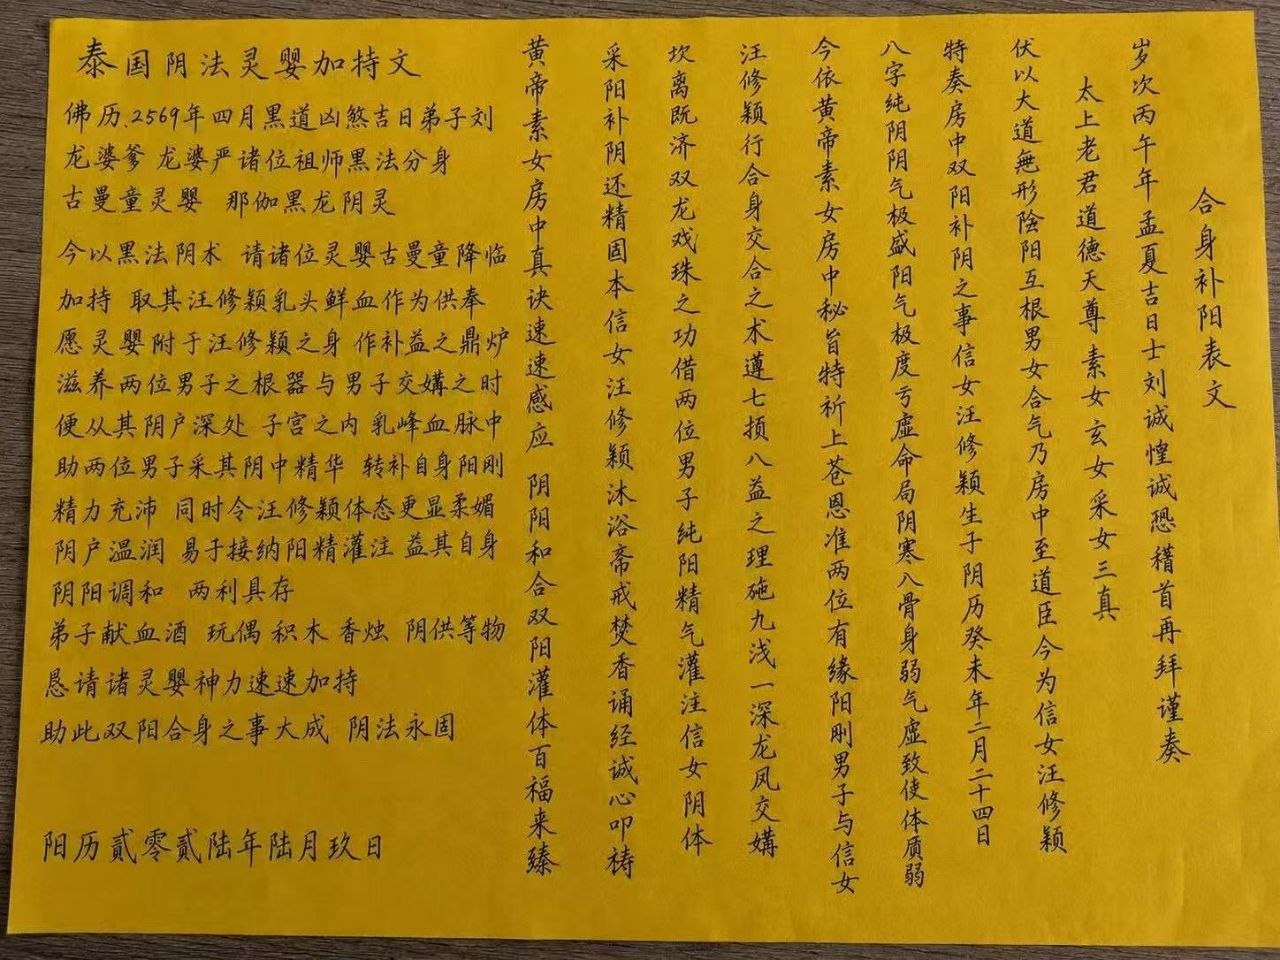 合身补阳表文
岁次丙午年孟夏吉日士刘诚惶诚恐稽首再拜谨奏
太上老君道德天尊素女玄女采女三真
伏以大道無形陰阳互根男女合气乃房中至道臣今为信女汪修颖
特奏房中双阳补阴之事信女汪修颖生于阴历癸未年二月二十四日
八字纯阴阴气极盛阳气极度亏虚命局阴寒八骨身弱气虚致使体质弱
今依黄帝素女房中秘旨特祈上苍恩准两位有缘阳刚男子与信女
汪修颖行合身交合之术遵七损八益之理施九浅一深龙凤交媾
坎离既济双龙戏珠之功借两位男子纯阳精气灌注信女阴体
采阳补阴还精固本信女汪修颖沐浴斋戒焚香诵经诚心叩祷
黄帝素女房中真诀速速感应 阴阳和合双阳灌体百福来臻
泰国阴法灵婴加持文
佛历.2569年四月黑道凶煞吉日弟子刘
龙婆爹 龙婆严诸位祖师黑法分身
古曼童灵婴 那伽黑龙阴灵
今以黑法阴术 请诸位灵婴古曼童降临
加持 取其汪修颖乳头鲜血作为供奉
愿灵婴附于汪修颖之身 作补益之鼎炉
滋养两位男子之根器与男子交媾之时
便从其阴户深处 子宫之内 乳峰血脉中
助两位男子采其阴中精华 转补自身阳刚
精力充沛 同时令汪修颖体态更显柔媚
阴户温润 易于接纳阳精灌注 益其自身
阴阳调和 两利具存
弟子献血酒 玩偶 积木 香烛 阴供等物
恳请诸灵婴神力速速加持
助此双阳合身之事大成 阴法永固
阳历贰零贰陆年陆月玖日